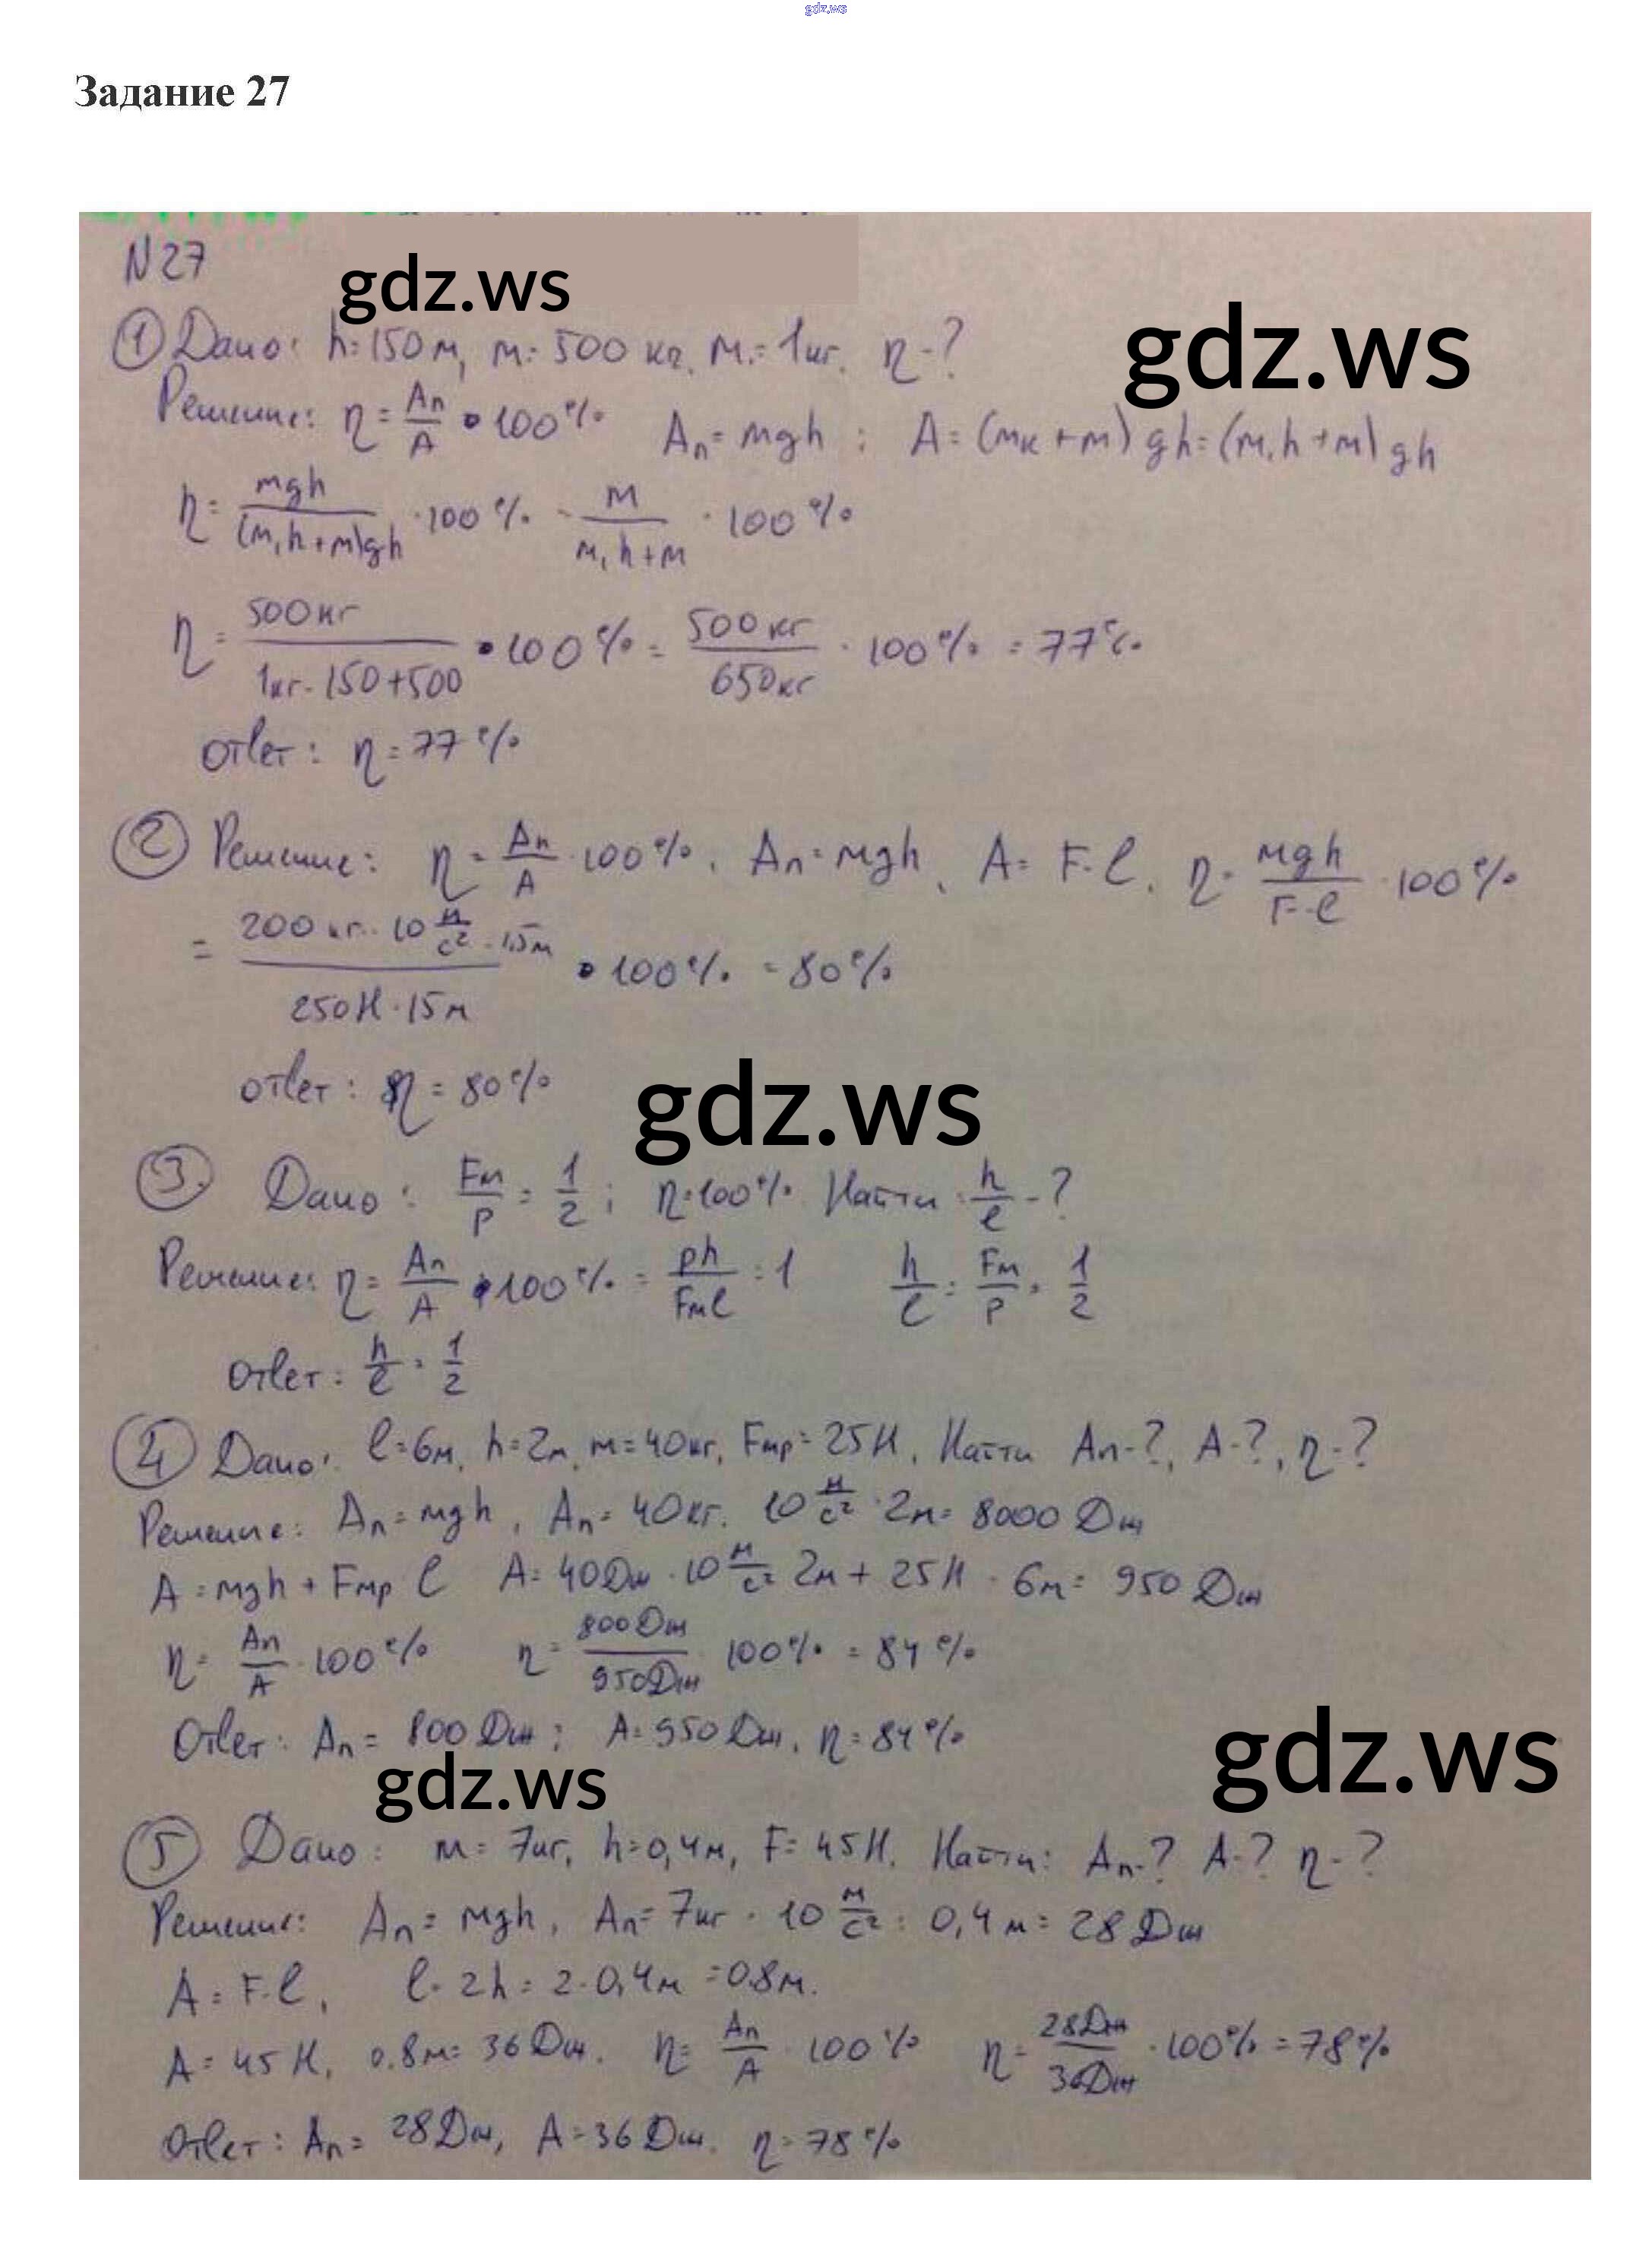 gdz.ws
Задание 27
N 27
gdz.ws
① Дано: h = 150 м, m = 500 кг. m₁ = 1 кг. η - ?
gdz.ws
Решение: η = Aп/A • 100% Aп = mgh ; A = (mк + m) gh = (m₁h + m) gh
η = mgh/(m₁h + m)gh · 100% = m/m₁h + m · 100%
η = 500 кг/1 кг · 150 + 500 • 100% = 500 кг/650 кг · 100% = 77%
ответ: η = 77%
② Решение: η = Aп/A · 100%. Aп = mgh, A = F·l. η = mgh/F·l · 100%
= 200 кг · 10 м/с² · 1,5 м/250 Н · 15 м • 100% = 80%
ответ: η = 80%
gdz.ws
③. Дано: Fм/P = 1/2 ; η = 100%. Найти: h/l - ?
Решение: η = Aп/A • 100% = ph/Fмl = 1 h/l = Fм/P = 1/2
ответ: h/l = 1/2
④ Дано: l = 6м, h = 2м, m = 40кг, Fтр = 25 Н. Найти Aп - ?, A - ?, η - ?
Решение: Aп = mgh, Aп = 40 кг. 10 м/с² · 2м = 8000 Дж
A = mgh + Fтр l A = 40 Дж · 10 м/с² 2м + 25 Н · 6м = 950 Дж
η = Aп/A · 100% η = 800 Дж/950 Дж 100% = 84%
Ответ: Aп = 800 Дж ; A = 950 Дж, η = 84%
gdz.ws
gdz.ws
⑤ Дано: m = 7 кг, h = 0,4 м, F = 45 Н. Найти: Aп - ? A - ? η - ?
Решение: Aп = mgh, Aп = 7 кг · 10 м/с² · 0,4 м = 28 Дж
A = F·l, l = 2h = 2 · 0,4 м = 0.8 м.
A = 45 Н, 0.8 м = 36 Дж. η = Aп/A · 100% η = 28 Дж/36 Дж · 100% = 78%
Ответ: Aп = 28 Дж, A = 36 Дж. η = 78%